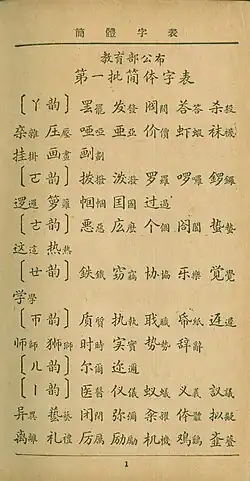 簡體字表
教育部公布
第一批简体字表
〔ㄚ韵〕罢罷 发發 阀閥 荅答 杀殺
杂雜 压壓 哑啞 亚亞 价價 虾蝦 袜襪
挂掛 画畫 劃
〔ㄛ韵〕拨撥 泼潑 罗羅 啰囉 鑼
逻邏 箩籮 帼幗 国國 过過
〔ㄜ韵〕恶惡 庅麼 个個 阁閣 蛰蟄
这這 热熱
〔ㄝ韵〕鉄鐵 窃竊 协協 乐樂 觉覺
学學
〔ㄭ韵〕质質 执執 职職 帋紙 遲
师師 狮獅 时時 实實 势勢 辞辭
〔ㄦ韵〕尔爾 迩邇
〔ㄧ韵〕医醫 仪儀 蚁蟻 义義 議
异異 藝 闭閉 弥彌 籴糴 体體 拟擬
离離 礼禮 厉厲 励勵 机機 鸡鷄
1